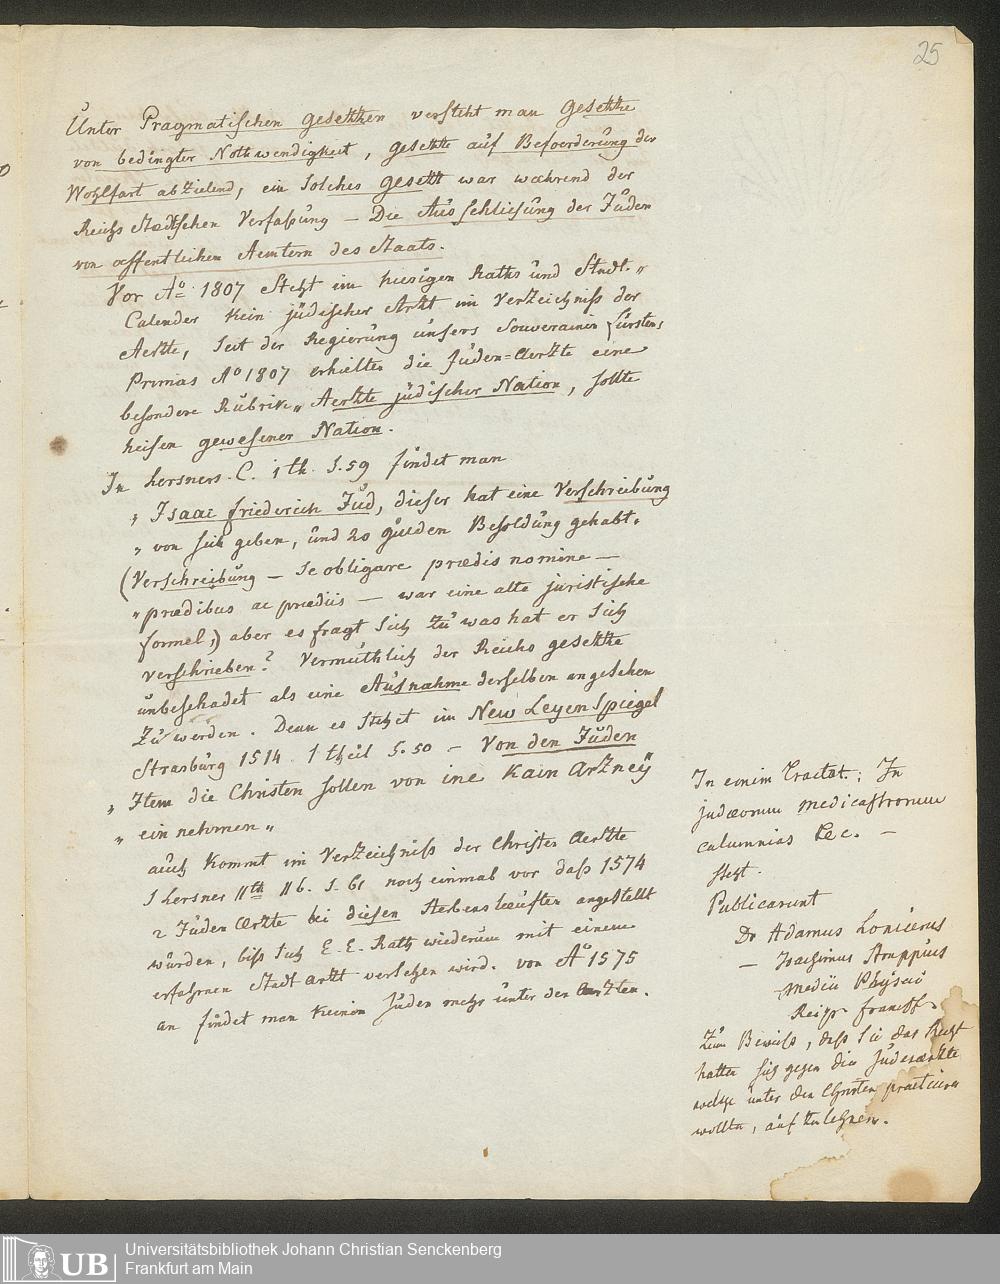 25
Unter Pragmatischen gesetzen versteht man Gesetze
von bedingter Nothwendigkeit, gesetze auf Befoerderung der
Wohlfart abzielend, ein solches gesetz war während der
Reichs staedtschen Verfaßung — Die Ausschliesung der Juden
von oeffentlichen Aemtern des Staats.
Vor Ao 1807 steht im hiesigen Raths und Stadt-
Calender kein jüdischer Arzt im Verzeichniss der
Aerzte, seit der Regierung unsers Souverainen Fürsten
Primas Ao 1807 erhielten die Juden=Aerzte eine
besondere Rubrik „ Aerzte jüdischer Nation, sollte
heisen gewesener Nation.
In Lersners C. 1 th. S. 59 findet man
„ Isaac friederich Jud, dieser hat eine Verschreibung
„ von sich geben, und 20 gulden Besoldung gehabt.
(Verschreibung — se obligare praedis nomine —
„ praedibus ac praediis — war eine alte juristische
formel,) aber es fragt sich zu was hat er sich
verschrieben? Vermuthlich der Reichs gesetze
unbeschadet als eine Ausnahme derselben angesehen
zu werden. Denn es stehet im New Leyen Spiegel
Strasburg 1514. 1 theil S. 50 — Von den Juden
„ Item die Christen sollen von ine kain arzneÿ
„ ein nehmen „
auch kommt im Verzeichniss der Christen Aerzte
S Lersner IIth II b. S. 61 noch einmal vor dass 1574
2 Juden Aerzte bei diesen Sterbensleuften angestellt
wurden, biss sich E. E. Rath wiederum mit einem
erfahrnen Stadt arzt versehen wird. von Ao 1575
an findet man keinen Juden mehr unter den Aerzten.
In einim Tractat: In
judaeorum medicastrorum
calumnias &c. —
steht.
Publicarunt
Dr Adamus Lonicerus
— Joachimus Struppius
Medici Physici
Reip. francof.
zum Beweiss, dass sie das Recht
hatten sich gegen die Judenaerzte
welche unter den Christen practiciren
wollten, aufzulehnen.
UB
Universitätsbibliothek Johann Christian Senckenberg
Frankfurt am Main